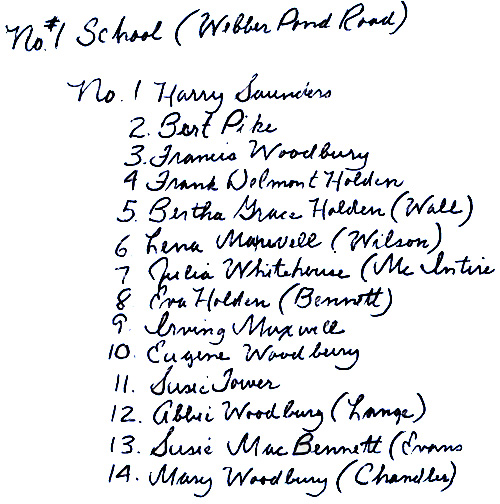 No. #1 School (Webber Pond Road)
No. 1 Harry Saunders
2. Bert Pike
3. Francis Woodbury
4 Frank Delmont Holden
5. Bertha Grace Holden (Wall)
6 Lena Maxwell (Wilson)
7 Julia Whitehouse (Mc Intire
8 Eva Holden (Bennett)
9. Irving Maxwell
10. Eugene Woodbury
11. Susie Tower
12. Abbie Woodbury (Lange)
13. Susie Mae Bennett (Evans
14. Mary Woodbury (Chandler)